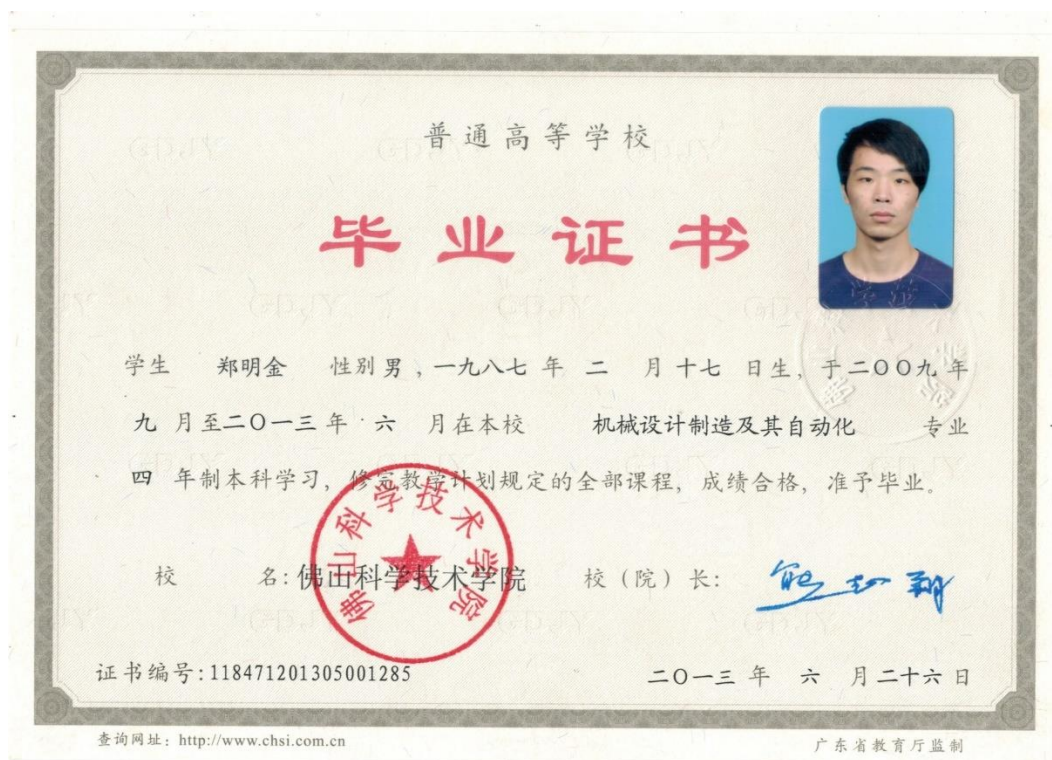 普通高等学校
毕业证书
学生 郑明金 性别 男，一九八七 年 二 月 十七 日生，于 二〇〇九 年
九 月至 二〇一三 年 六 月在本校 机械设计制造及其自动化 专业
四 年制本科学习，修完教学计划规定的全部课程，成绩合格，准予毕业。
校 名：佛山科学技术学院 校（院）长：
佛山科学技术学院
证书编号：118471201305001285 二〇一三 年 六 月 二十六 日
查询网址：http://www.chsi.com.cn 广东省教育厅监制